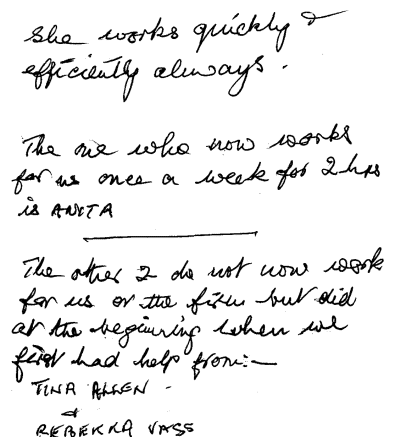 She works quickly &
efficiently always.
The one who now works
for us once a week for 2 hrs
is ANITA
The other 2 do not now work
for us or the firm but did
at the beginning when we
first had help from:—
TINA ALLEN -
&
REBEKKA VASS